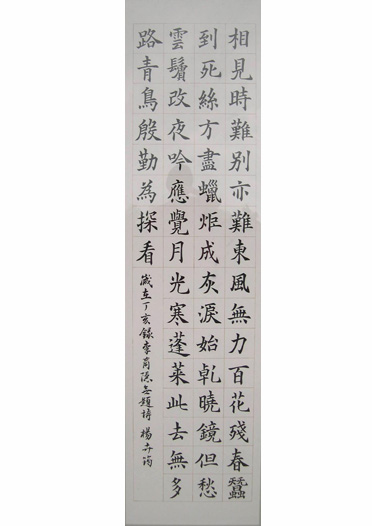 相見時難別亦難東風無力百花殘春蠶
到死絲方盡蠟炬成灰淚始乾曉鏡但愁
雲鬢改夜吟應覺月光寒蓬萊此去無多
路青鳥殷勤為探看
歲在丁亥錄李商隱无題詩 楊卉筠